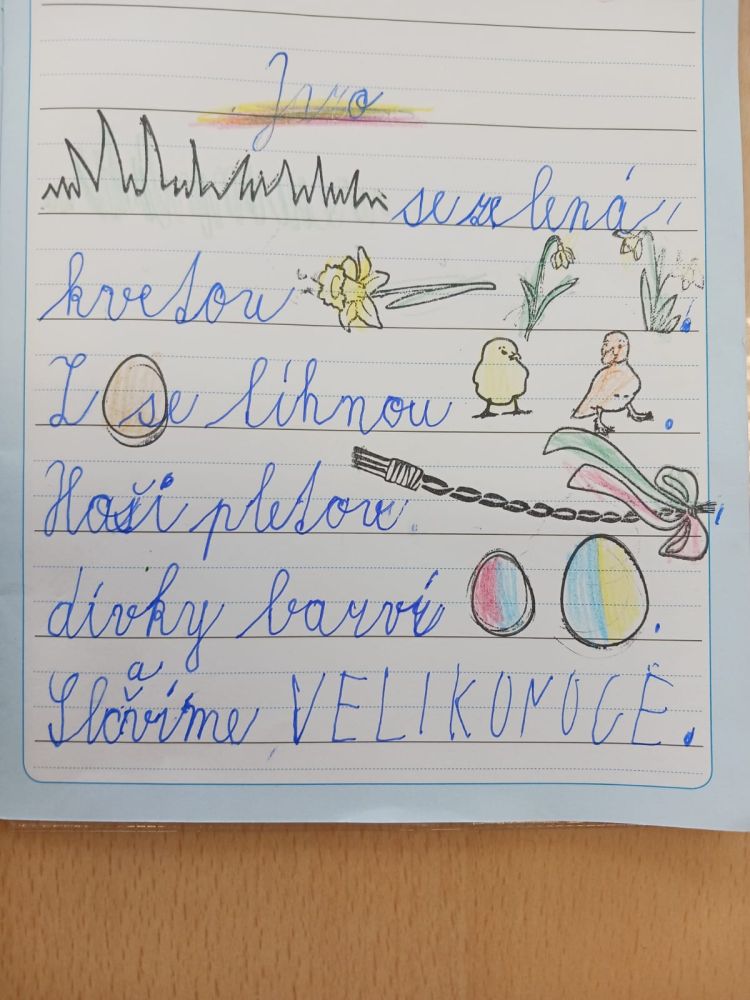 Jaro
se zelená,
kvetou .
Z se líhnou .
Hoši pletou ,
dívky barví .
Slavíme VELIKONOCE.